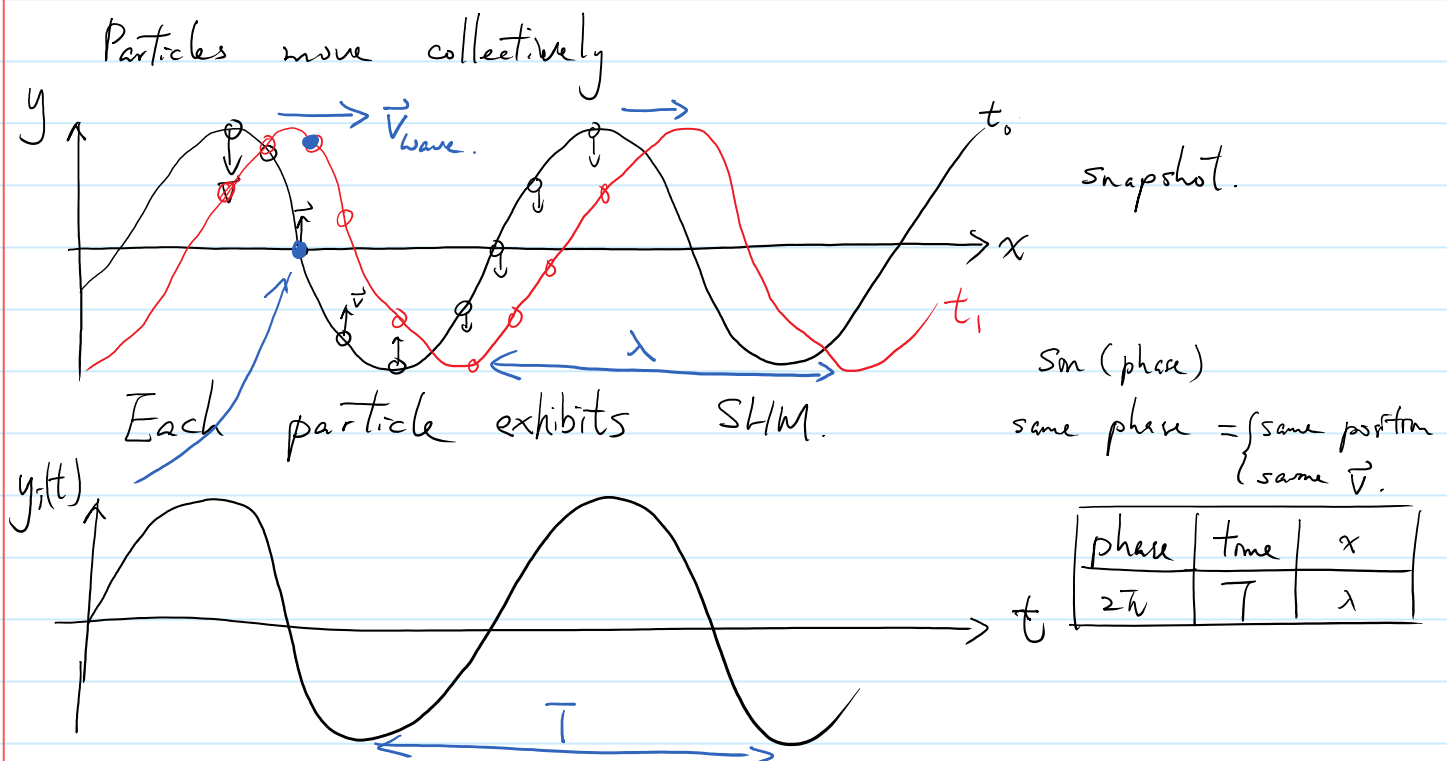 Particles move collectively
y
v⃗wave.
t₀
snapshot.
v⃗
x
v⃗
t₁
λ
Sin (phase)
Each particle exhibits SHM.
same phase = { same position
same v⃗.
yᵢ(t)
phase | time | x
2π | T | λ
t
T